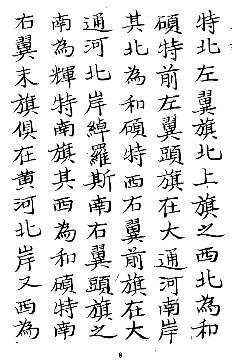 特北左翼旗北上旗之西北為和
碩特前左翼頭旗在大通河南岸
其北為和碩特西右翼前旗在大
通河北岸綽羅斯南右翼頭旗之
南為輝特南旗其西為和碩特南
右翼末旗俱在黃河北岸又西為
8